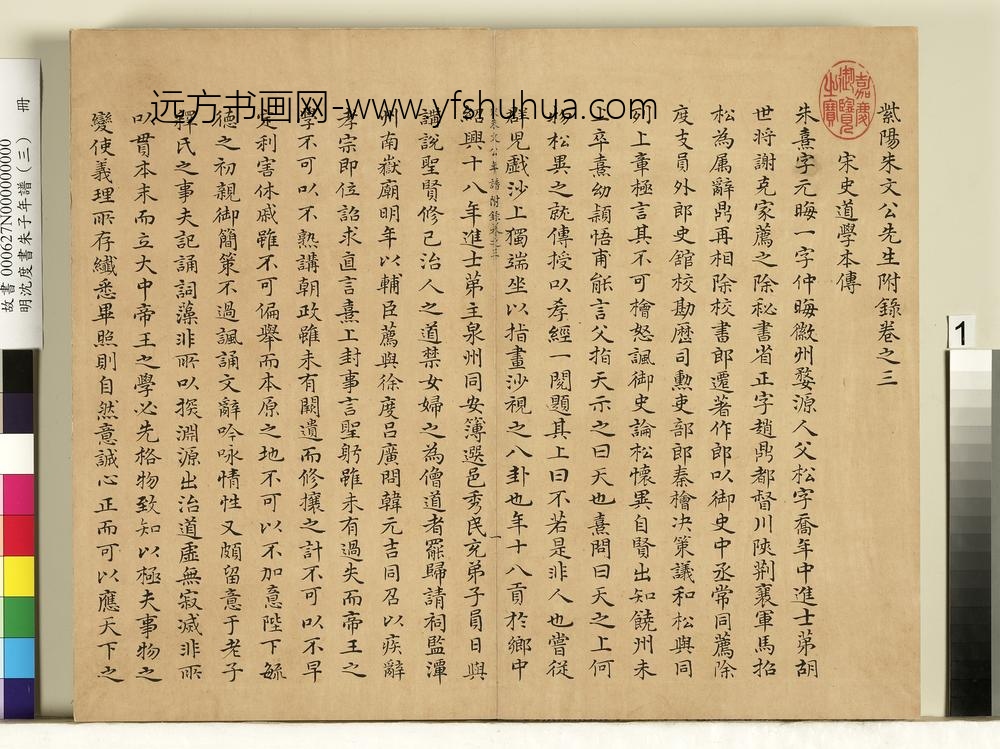 紫陽朱文公先生附錄卷之三
宋史道學本傳
朱熹字元晦一字仲晦徽州婺源人父松字喬年中進士第胡
世将謝克家薦之除秘書省正字趙鼎都督川陝荆襄軍馬招
松為屬辭鼎再相除校書郎遷著作郎以御史中丞常同薦除
度支員外郎史館校勘歷司勲吏部郎秦檜決策議和松與同
列上章極言其不可檜怒諷御史論松懷異自賢出知饒州未
上卒熹幼穎悟甫能言父指天示之曰天也熹問曰天之上何
物松異之就傳授以孝經一閱題其上曰不若是非人也嘗從
群兒戲沙上獨端坐以指畫沙視之八卦也年十八貢於鄉中
朱文公年譜附錄卷之三
一
紹興十八年進士第主泉州同安簿選邑秀民充弟子員日與
講說聖賢修己治人之道禁女婦之為僧道者罷歸請祠監潭
州南嶽廟明年以輔臣薦與徐度吕廣問韓元吉同召以疾辭
孝宗即位詔求直言熹上封事言聖躬雖未有過失而帝王之
學不可以不熟講朝政雖未有闕遺而修攘之計不可以不早
定利害休戚雖不可徧舉而本原之地不可以不加意陛下毓
德之初親御簡策不過諷誦文辭吟咏情性又頗留意于老子
釋氏之事夫記誦詞藻非所以探淵源出治道虛無寂滅非所
以貫本末而立大中帝王之學必先格物致知以極夫事物之
變使義理所存纖悉畢照則自然意誠心正而可以應天下之
嘉慶御覽之寶
远方书画网-www.yfshuhua.com
故書 000627N000000000
明沈度書朱子年譜(三) 冊
1